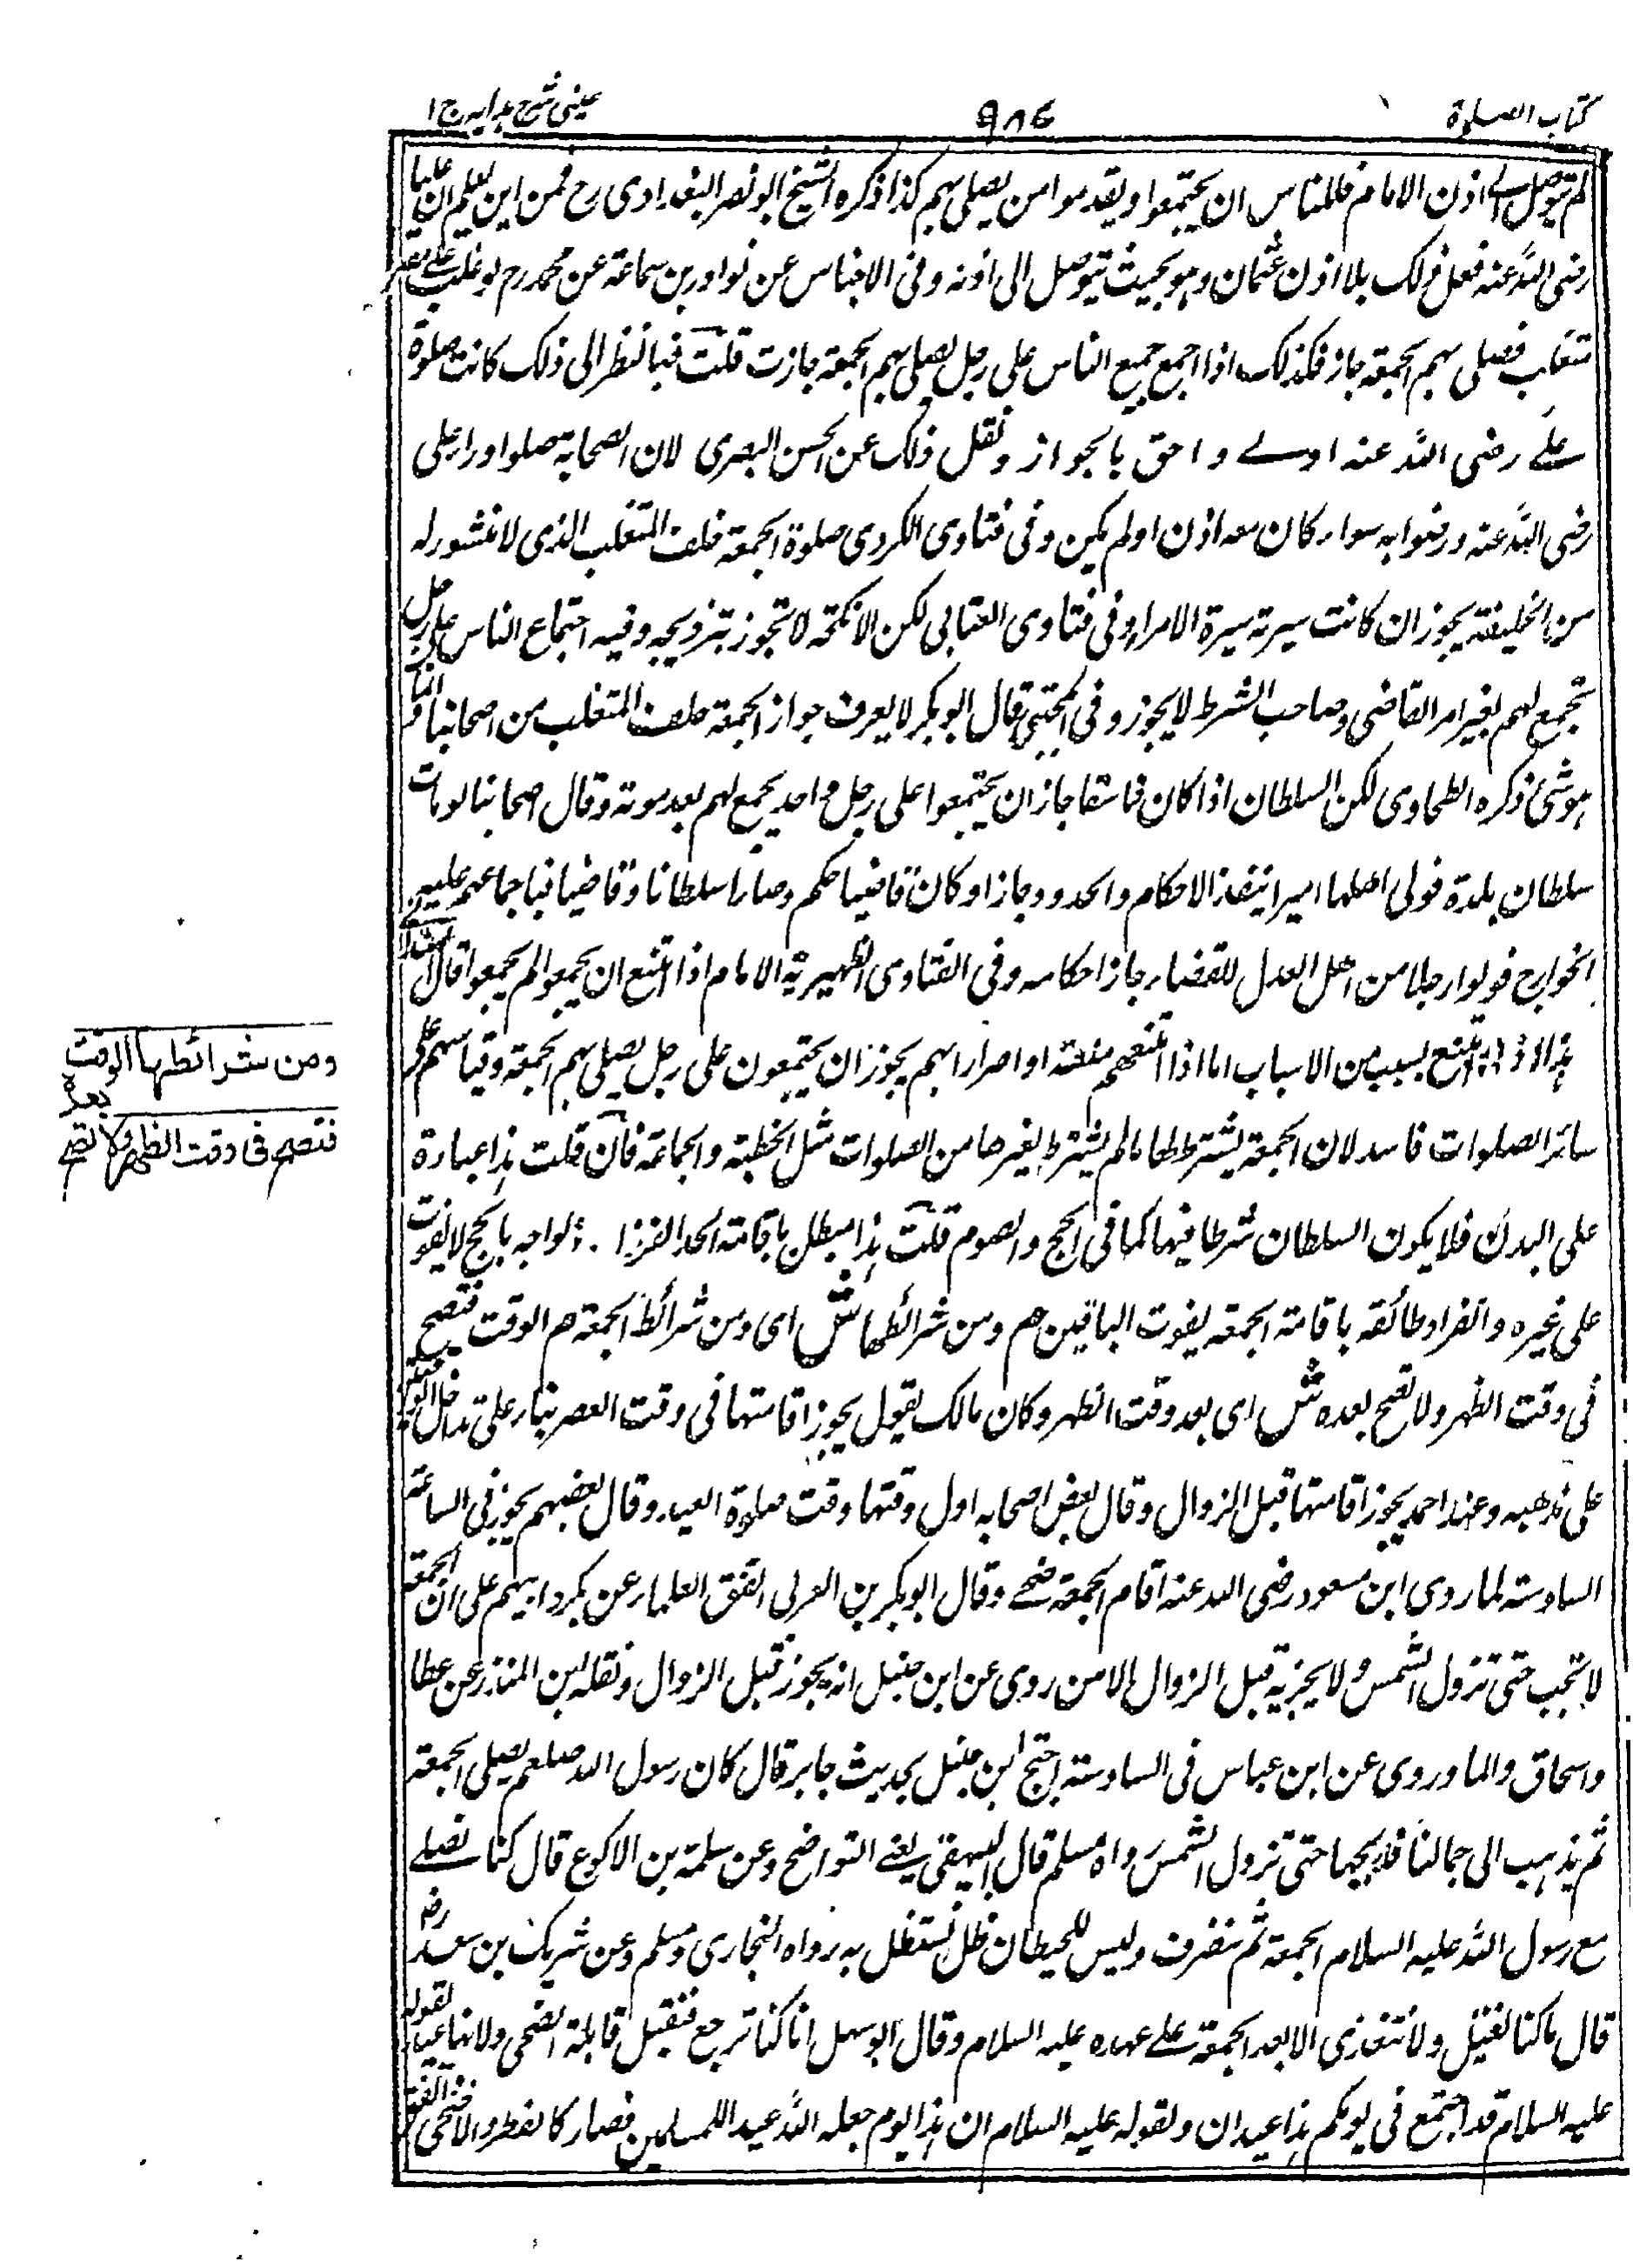 كتاب الصلوة
٩٨٤
عينى شرح هدايه ج ١
لم يتوصل الى اذن الامام فللناس ان يجتمعوا ويقدموا من يصلى بهم كذا ذكره الشيخ ابو نصر البغدادى رح فمن اين يعلم ان عليا
رضى الله عنه فعل ذلك بلا اذن عثمان وهو بحيث يتوصل الى اذنه وفى الاجناس عن نوادر بن سماعة عن محمد رح لو غلب على مصر
متغلب فصلى بهم الجمعة جاز فكذلك اذا اجمع جميع الناس على رجل يصلى بهم الجمعة جازت قلت فبالنظر الى ذلك كانت صلوة
على رضى الله عنه اولى واحق بالجواز ونقل ذلك عن الحسن البصرى لان الصحابة صلوا وراء على
رضى الله عنه ورضوا به سواء كان معه اذن اولم يكن وفى فتاوى الكردى صلوة الجمعة خلف المتغلب الذى لا منشور له
من الخليفة يجوز ان كانت سيرته سيرة الامراء وفى فتاوى العتابى لكن الانكحة لا تجوز بتزويجه وفيه اجتماع الناس على رجل
يجمع لهم بغير امر القاضى وصاحب الشرط لا يجوز وفى المجتبى قال ابو بكر لا يعرف جواز الجمعة خلف المتغلب من اصحابنا
هو شئ ذكره الطحاوى لكن السلطان اذا كان فاسقا جاز ان يجتمعوا على رجل واحد يجمع لهم بعد موته وقال اصحابنا لو مات
سلطان بلدة فولى اهلها اميرا ينفذ الاحكام والحدود جاز او كان قاضيا حكم وصارا سلطانا وقاضيا باجماعهم عليه
الخوارج فولوا رجلا من اهل العدل للقضاء جاز احكامه وفى الفتاوى الظهيرية الامام اذا امتنع ان يجمعوا لم يجمعوا قال
هذا اذا امتنع بسبب من الاسباب اما اذا امتنعهم منعته او اصرارا بهم يجوز ان يجتمعون على رجل يصلى بهم الجمعة وقياسهم على
سائر الصلوات فاسد لان الجمعة يشترط لها مالم يشترط لغيرها من الصلوات مثل الخطبة والجماعة فان قلت هذا عبارة
على البدن فلا يكون السلطان شرطا فيها كما فى الحج والصوم قلت هذا مبطل باقامة الحد الواحد بالحج لا يفوت
على غيره وانفراد طائفه باقامة الجمعه يفوت الباقين م ومن شرائطها ش اى ومن شرائط الجمعة م الوقت فتصح
فى وقت الظهر ولا تصح بعده ش اى بعد وقت الظهر وكان مالك يقول يجوز اقامتها فى وقت العصر بناء على تداخل الوقتين
على مذهبه وعند احمد يجوز اقامتها قبل الزوال وقال بعض اصحابه اول وقتها وقت صلوة العيد وقال بعضهم يجوز فى الساعة
السادسة لما روى ابن مسعود رضى الله عنه اقام الجمعة ضحى وقال ابو بكر بن العربى اتفق العلماء عن بكرة ابيهم على ان الجمعة
لا تجب حتى تزول الشمس ولا يجزيه قبل الزوال الا من روى عن ابن حنبل انه يجوز قبل الزوال ونقله ابن المنذر عن عطا
واسحاق والماوردى عن ابن عباس فى السادسة احتج ابن حنبل بحديث جابر قال كان رسول الله صلعم يصلى الجمعة
ثم يذهب الى جمالنا فيريحها حتى تزول الشمس رواه مسلم قال البيهقى يعنى النواضح وعن سلمة بن الاكوع قال كنا نصلى
مع رسول الله عليه السلام الجمعة ثم ننصرف وليس للحيطان ظل نستظل به رواه البخارى ومسلم وعن شريك بن سعد رض
قال ما كنا نقيل ولا نتغذى الا بعد الجمعة على عهده عليه السلام وقال ابو سهل انا كنا نرجع فنقيل قائلة الضحى ولانها عيد لقوله
عليه السلام قد اجتمع فى يومكم هذا عيدان ولقوله عليه السلام ان هذا اليوم جعله الله عيدا للمسلمين فصار كالفطر والاضحى
ومن شرائطها الوقت
فتصح فى وقت الظهر ولا تصح
بعده